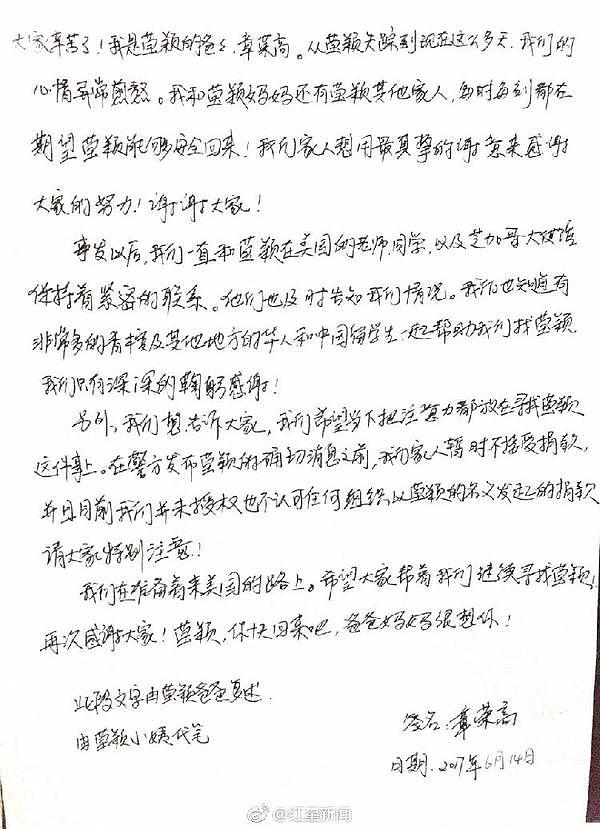 大家辛苦了！我是莹颖的爸爸章荣高。从莹颖失踪到现在这么多天，我们的
心情异常煎熬。我和莹颖妈妈还有莹颖其他家人，每时每刻都在
期望莹颖能够安全回来！我们家人想用最真挚的谢意来感谢
大家的努力！谢谢大家！
事发以后，我们一直和莹颖在美国的老师、同学，以及芝加哥大使馆
保持着紧密的联系。他们也及时告知我们情况。我们也知道有
非常多的香槟及其他地方的华人和中国留学生一起帮助我们找莹颖，
我们只有深深的鞠躬感谢！
另外，我们想告诉大家，我们希望当下把注意力都放在寻找莹颖
这件事上。在警方发布莹颖的确切消息之前，我们家人暂时不接受捐款，
并且目前我们并未授权也不认可任何组织以莹颖的名义发起的捐款，
请大家特别注意！
我们在准备着来美国的路上。希望大家帮着我们继续寻找莹颖，
再次感谢大家！莹颖，你快回来吧，爸爸妈妈很想你！
此段文字由莹颖爸爸口述
由莹颖小姨代笔
签名：章荣高
日期：2017年6月14日
@红星新闻